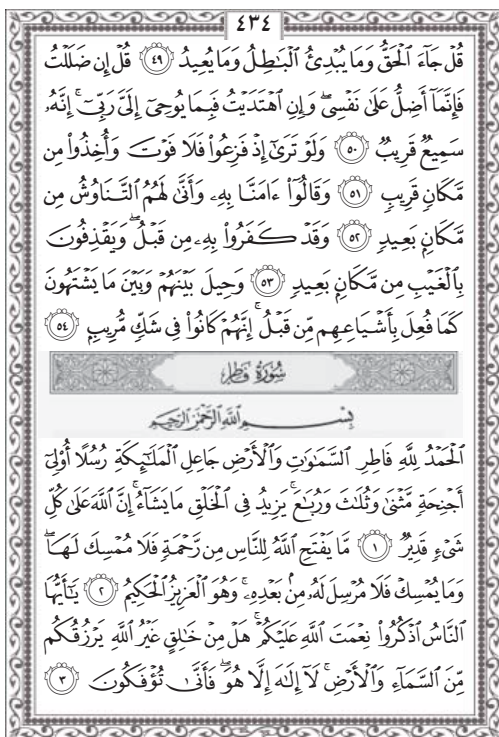 ٤٣٤
قُلْ جَآءَ ٱلْحَقُّ وَمَا يُبْدِئُ ٱلْبَٰطِلُ وَمَا يُعِيدُ ٤٩ قُلْ إِن ضَلَلْتُ
فَإِنَّمَآ أَضِلُّ عَلَىٰ نَفْسِى ۖ وَإِنِ ٱهْتَدَيْتُ فَبِمَا يُوحِىٓ إِلَىَّ رَبِّىٓ ۚ إِنَّهُۥ
سَمِيعٌ قَرِيبٌ ٥٠ وَلَوْ تَرَىٰٓ إِذْ فَزِعُوا۟ فَلَا فَوْتَ وَأُخِذُوا۟ مِن
مَّكَانٍ قَرِيبٍ ٥١ وَقَالُوٓا۟ ءَامَنَّا بِهِۦ وَأَنَّىٰ لَهُمُ ٱلتَّنَاوُشُ مِن
مَّكَانٍۭ بَعِيدٍ ٥٢ وَقَدْ كَفَرُوا۟ بِهِۦ مِن قَبْلُ ۖ وَيَقْذِفُونَ
بِٱلْغَيْبِ مِن مَّكَانٍۭ بَعِيدٍ ٥٣ وَحِيلَ بَيْنَهُمْ وَبَيْنَ مَا يَشْتَهُونَ
كَمَا فُعِلَ بِأَشْيَاعِهِم مِّن قَبْلُ ۚ إِنَّهُمْ كَانُوا۟ فِى شَكٍّ مُّرِيبٍۭ ٥٤
سُورَةُ فَاطِرٍ
بِسْمِ ٱللَّهِ ٱلرَّحْمَٰنِ ٱلرَّحِيمِ
ٱلْحَمْدُ لِلَّهِ فَاطِرِ ٱلسَّمَٰوَٰتِ وَٱلْأَرْضِ جَاعِلِ ٱلْمَلَٰٓئِكَةِ رُسُلًا أُو۟لِىٓ
أَجْنِحَةٍ مَّثْنَىٰ وَثُلَٰثَ وَرُبَٰعَ ۚ يَزِيدُ فِى ٱلْخَلْقِ مَا يَشَآءُ ۚ إِنَّ ٱللَّهَ عَلَىٰ كُلِّ
شَىْءٍ قَدِيرٌ ١ مَّا يَفْتَحِ ٱللَّهُ لِلنَّاسِ مِن رَّحْمَةٍ فَلَا مُمْسِكَ لَهَا ۖ
وَمَا يُمْسِكْ فَلَا مُرْسِلَ لَهُۥ مِنۢ بَعْدِهِۦ ۚ وَهُوَ ٱلْعَزِيزُ ٱلْحَكِيمُ ٢ يَٰٓأَيُّهَا
ٱلنَّاسُ ٱذْكُرُوا۟ نِعْمَتَ ٱللَّهِ عَلَيْكُمْ ۚ هَلْ مِنْ خَٰلِقٍ غَيْرُ ٱللَّهِ يَرْزُقُكُم
مِّنَ ٱلسَّمَآءِ وَٱلْأَرْضِ ۚ لَآ إِلَٰهَ إِلَّا هُوَ ۖ فَأَنَّىٰ تُؤْفَكُونَ ٣